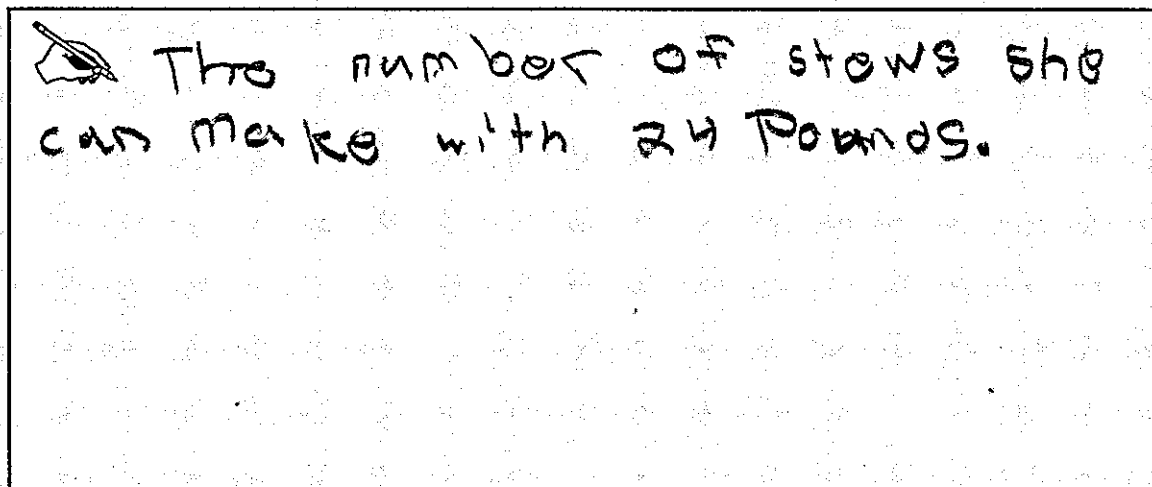 The number of stews she
can make with 24 Pounds.